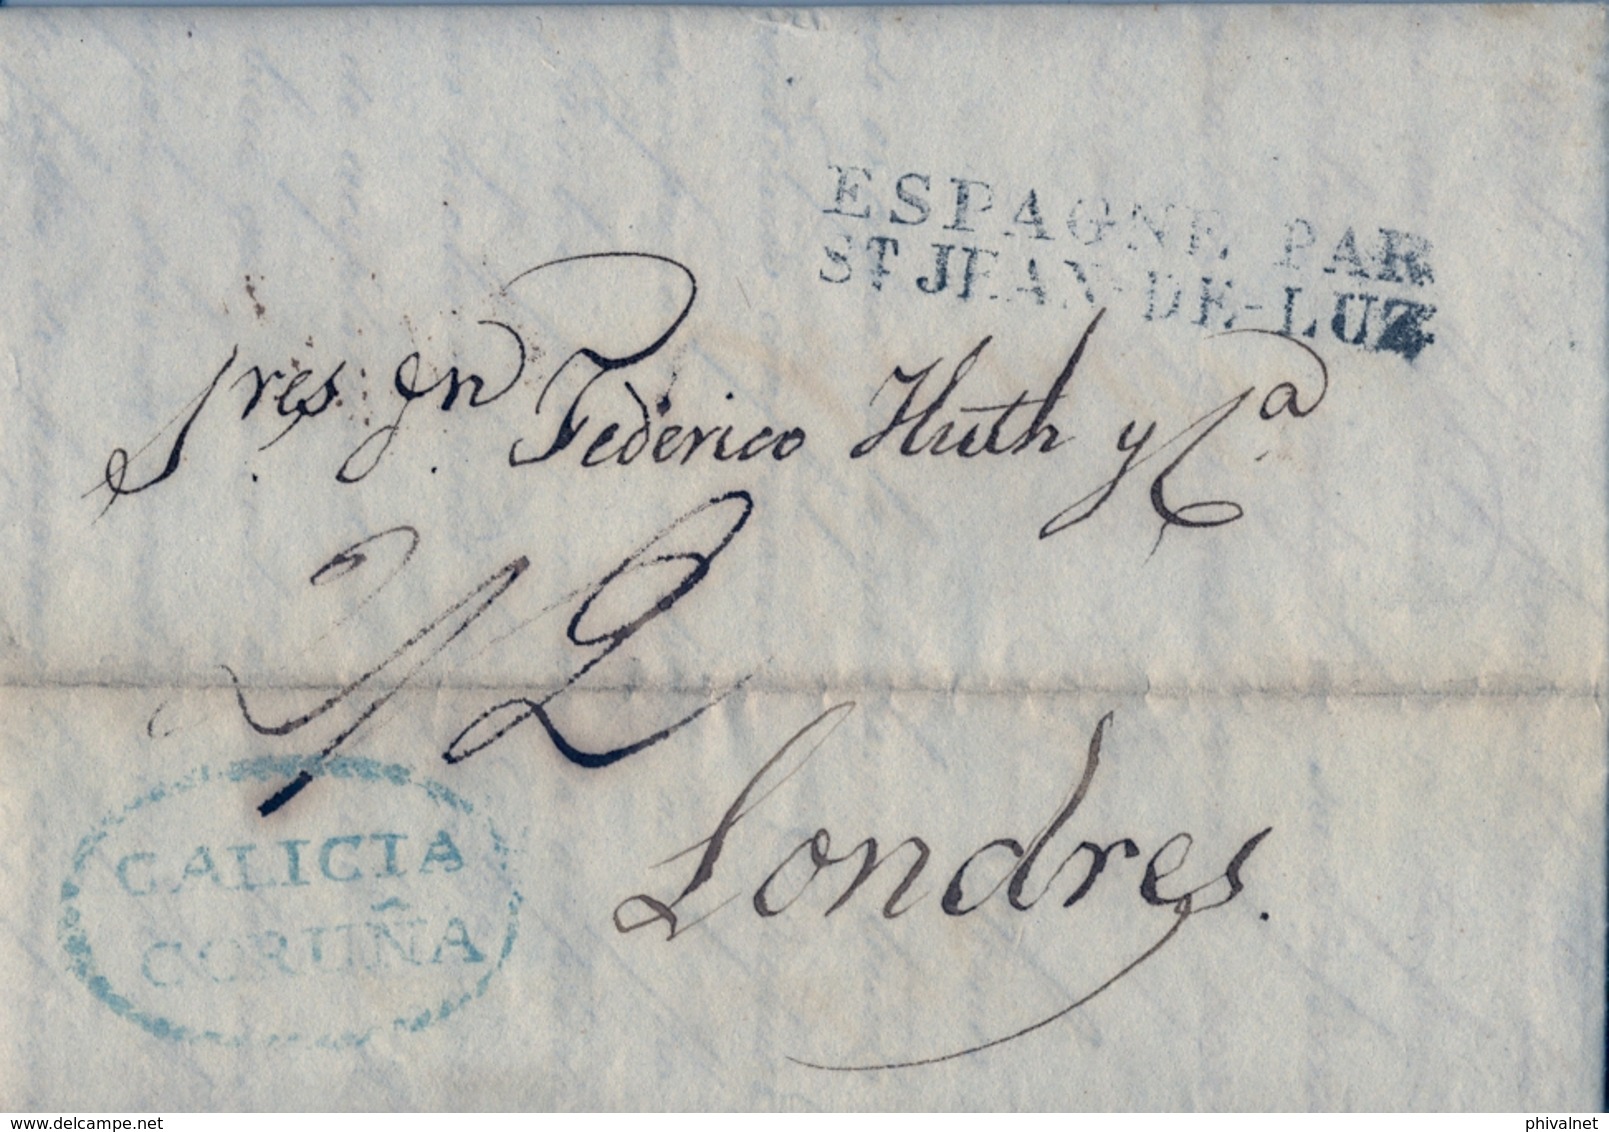 ESPAGNE PAR
ST JEAN-DE-LUZ
Sres. Jn. Federico Huth y Ca.
2/2
Londres.
GALICIA
CORUÑA
delcampe.net
phivalnet